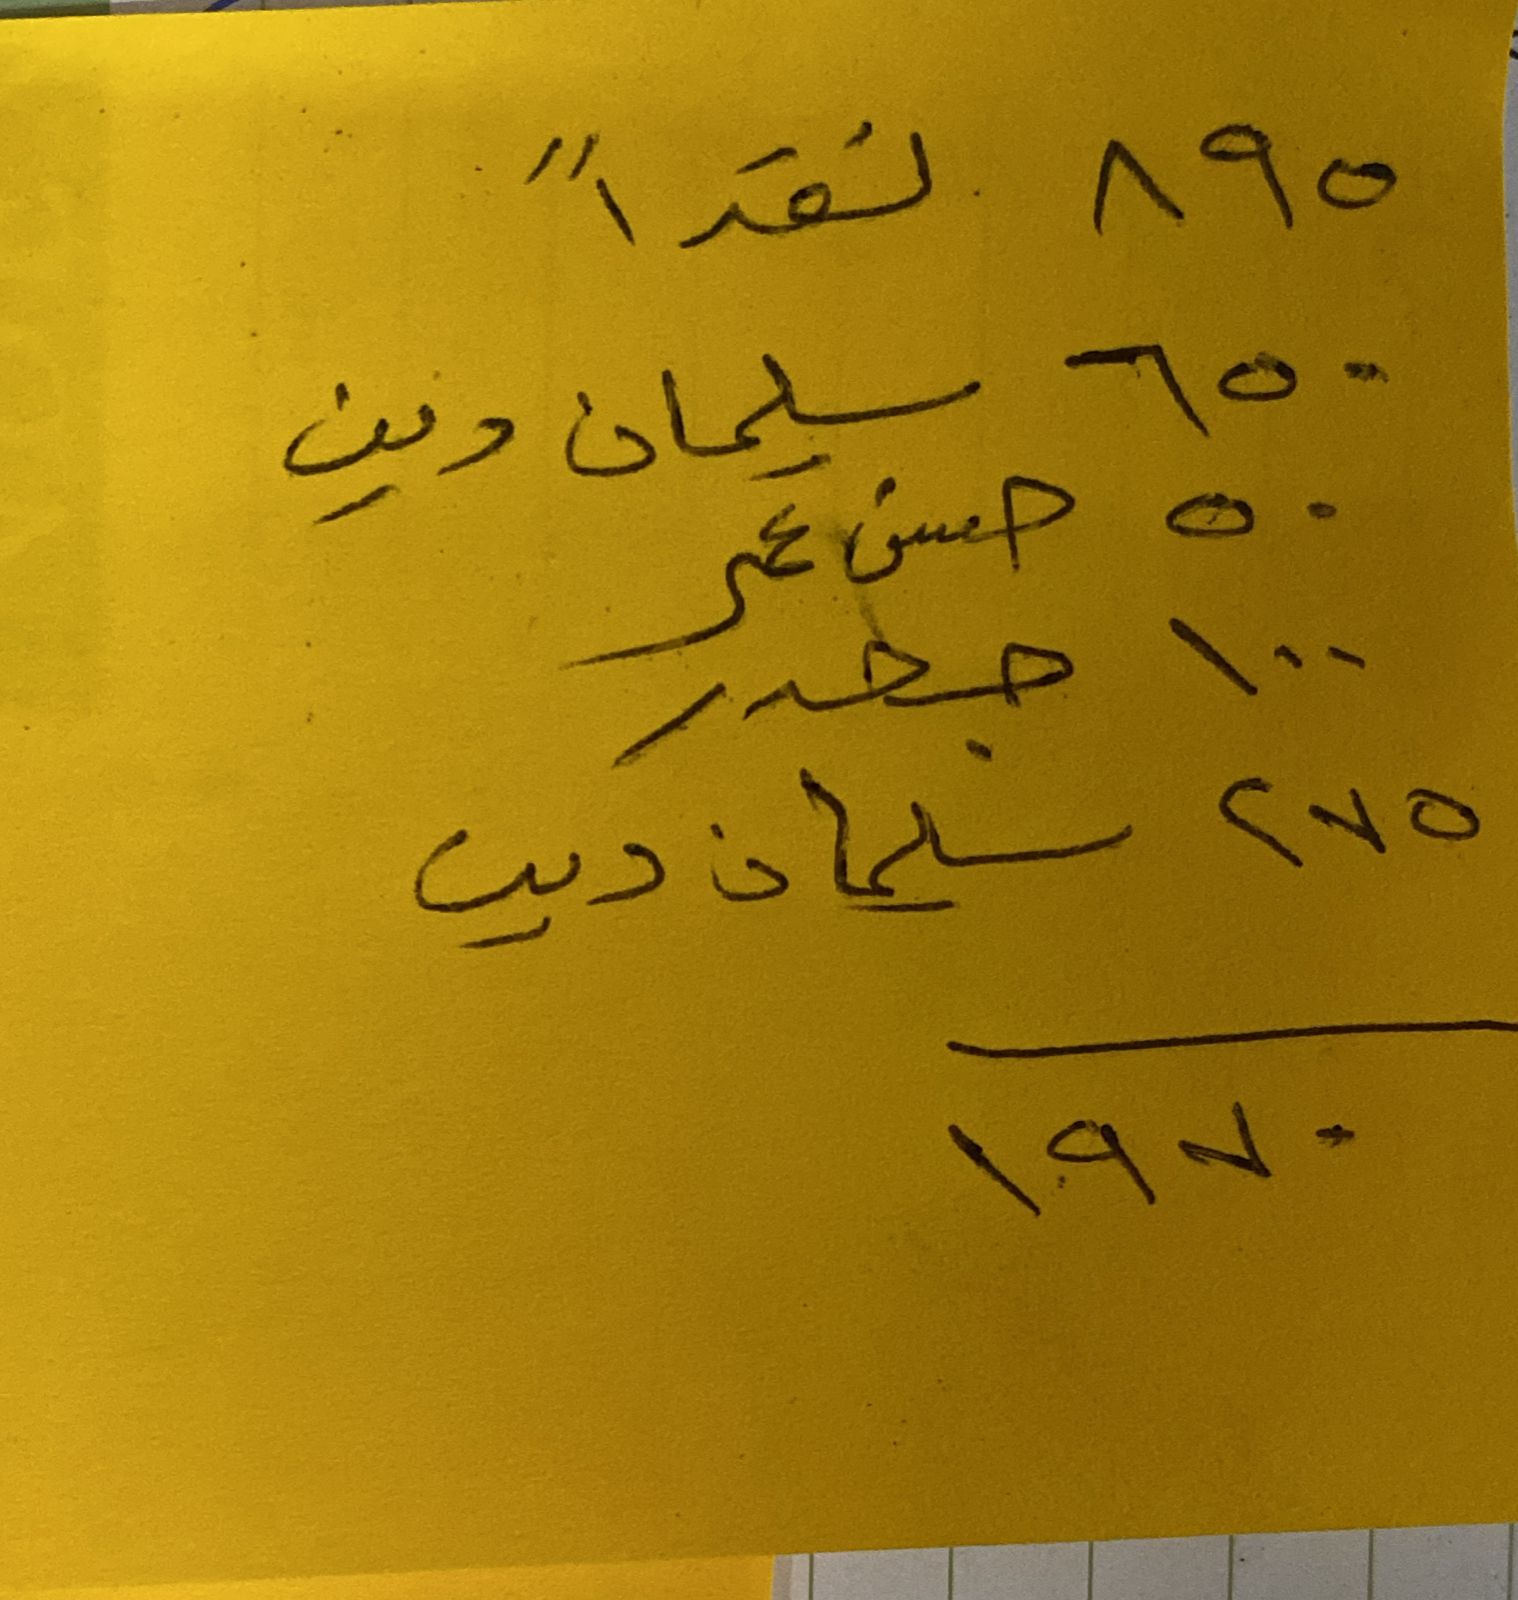 ٨٩٥ نقداً
٦٥٠ سليمان دين
٥٠ حسن عمر
١٠٠ جحدر
٢٧٥ سليمان دين
١٩٧٠